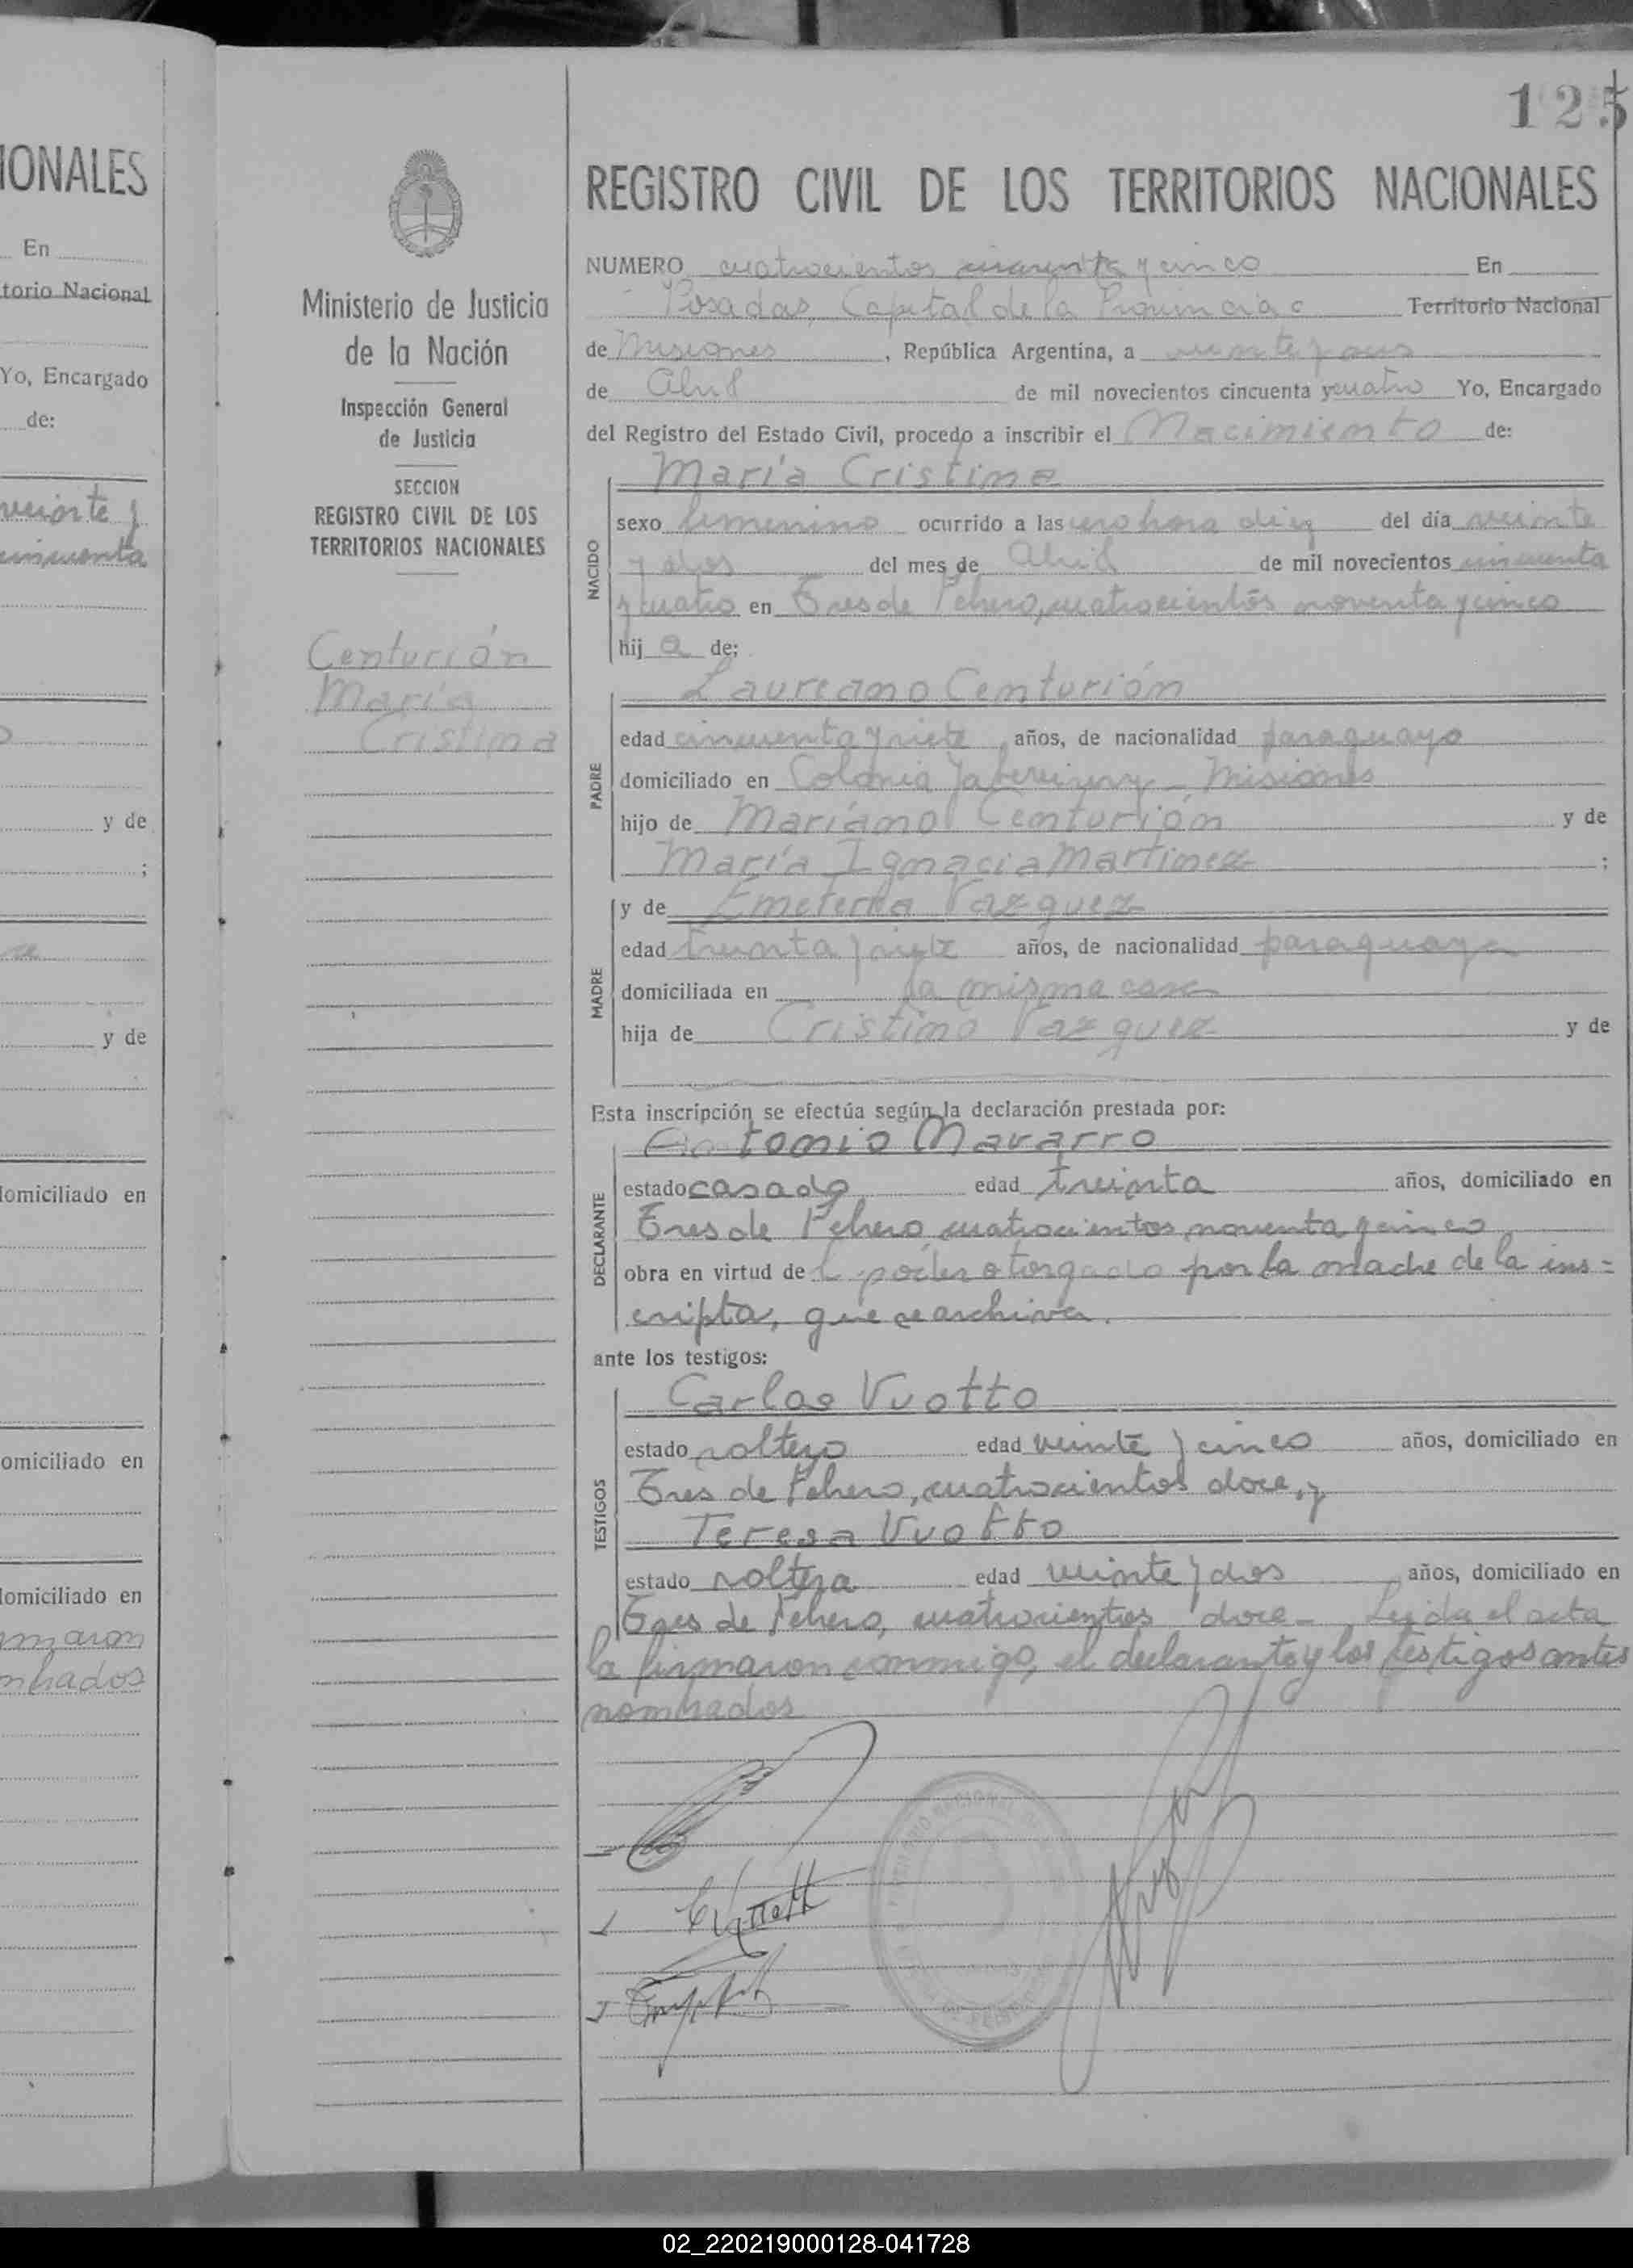 IONALES
En
torio Nacional
Yo, Encargado
de:
veinte y
cincuenta
y de
;
y de
domiciliado en
omiciliado en
domiciliado en
maron
nbrados
Ministerio de Justicia
de la Nación
Inspección General
de Justicia
SECCION
REGISTRO CIVIL DE LOS
TERRITORIOS NACIONALES
Centurión
María
Cristina
125
REGISTRO CIVIL DE LOS TERRITORIOS NACIONALES
NUMERO cuatrocientos cuarenta y cinco En
Posadas, Capital de la Provincia Territorio Nacional
de Misiones, República Argentina, a veinte y
de Abril de mil novecientos cincuenta y cuatro Yo, Encargado
del Registro del Estado Civil, procedo a inscribir el Nacimiento de:
María Cristina
NACIDO
sexo femenino ocurrido a las una hora diez del día veinte
y dos del mes de Abril de mil novecientos cincuenta
y cuatro en Tres de Febrero, cuatrocientos noventa y cinco
hij a de:
PADRE
Laureano Centurión
edad cincuenta y siete años, de nacionalidad paraguayo
domiciliado en Colonia Yabebiry - Misiones
hijo de Mariano Centurión y de
María Ignacia Martinez ;
MADRE
y de Emeteria Vazquez
edad treinta y siete años, de nacionalidad paraguaya
domiciliada en la misma casa
hija de Cristina Vazquez y de
Esta inscripción se efectúa según la declaración prestada por:
DECLARANTE
Antonio Navarro
estado casado edad treinta años, domiciliado en
Tres de Febrero, cuatrocientos noventa y cinco
obra en virtud de l poder otorgado por la madre de la ins=
cripta, que se archiva.
ante los testigos:
TESTIGOS
Carlos Vuotto
estado soltero edad veinte y cinco años, domiciliado en
Tres de Febrero, cuatrocientos doce, y
Teresa Vuotto
estado soltera edad veinte y dos años, domiciliado en
Tres de Febrero, cuatrocientos doce - Leida el acta
la firmaron conmigo, el declarante y los testigos antes
nombrados
02_220219000128-041728